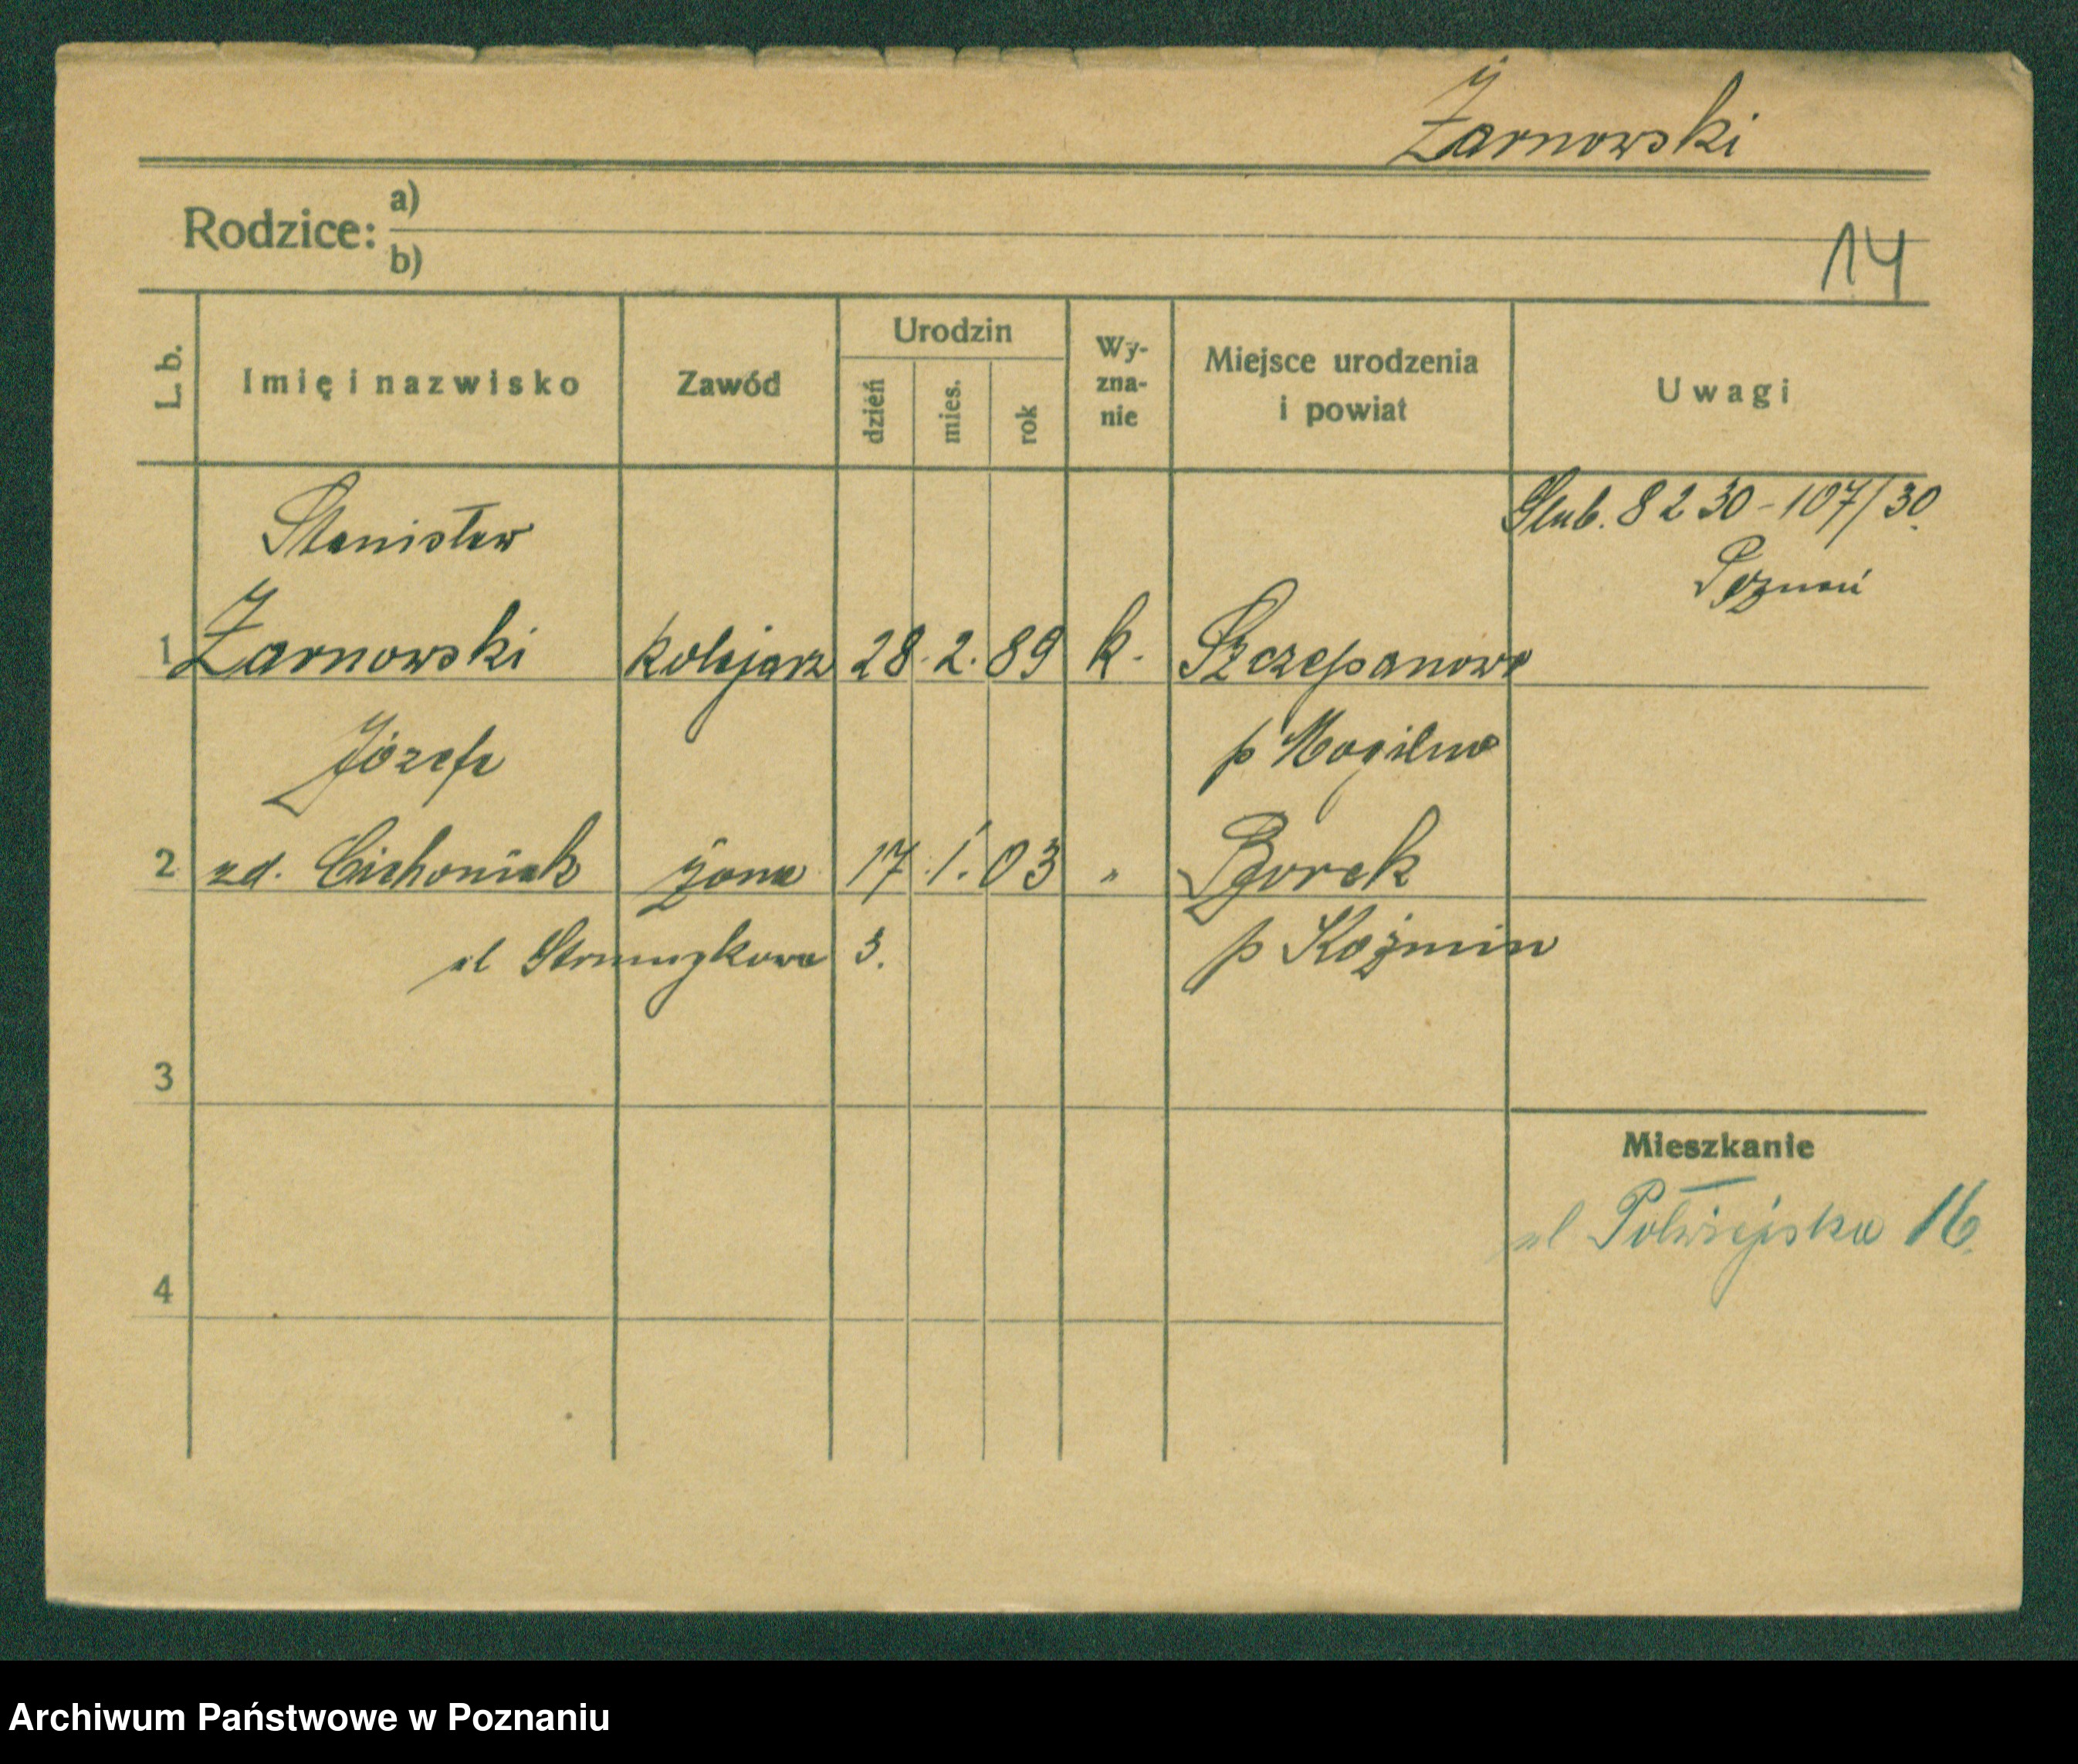 Żarnowski
Rodzice: a)
b)
14
L. b.
Imię i nazwisko
Zawód
Urodzin
dzień
mies.
rok
Wy-
zna-
nie
Miejsce urodzenia
i powiat
Uwagi
Stanisław
Ślub. 8 2 30 - 107/30
Poznań
1 Żarnowski kolejarz 28. 2. 89 k. Szczepanowo
Józefa p Mogilno
2 zd. Cichoniak żona 17. 1. 03 " Borek
ul Strumykowa 3. p Koźmin
3
Mieszkanie
ul Półwiejska 16.
4
Archiwum Państwowe w Poznaniu